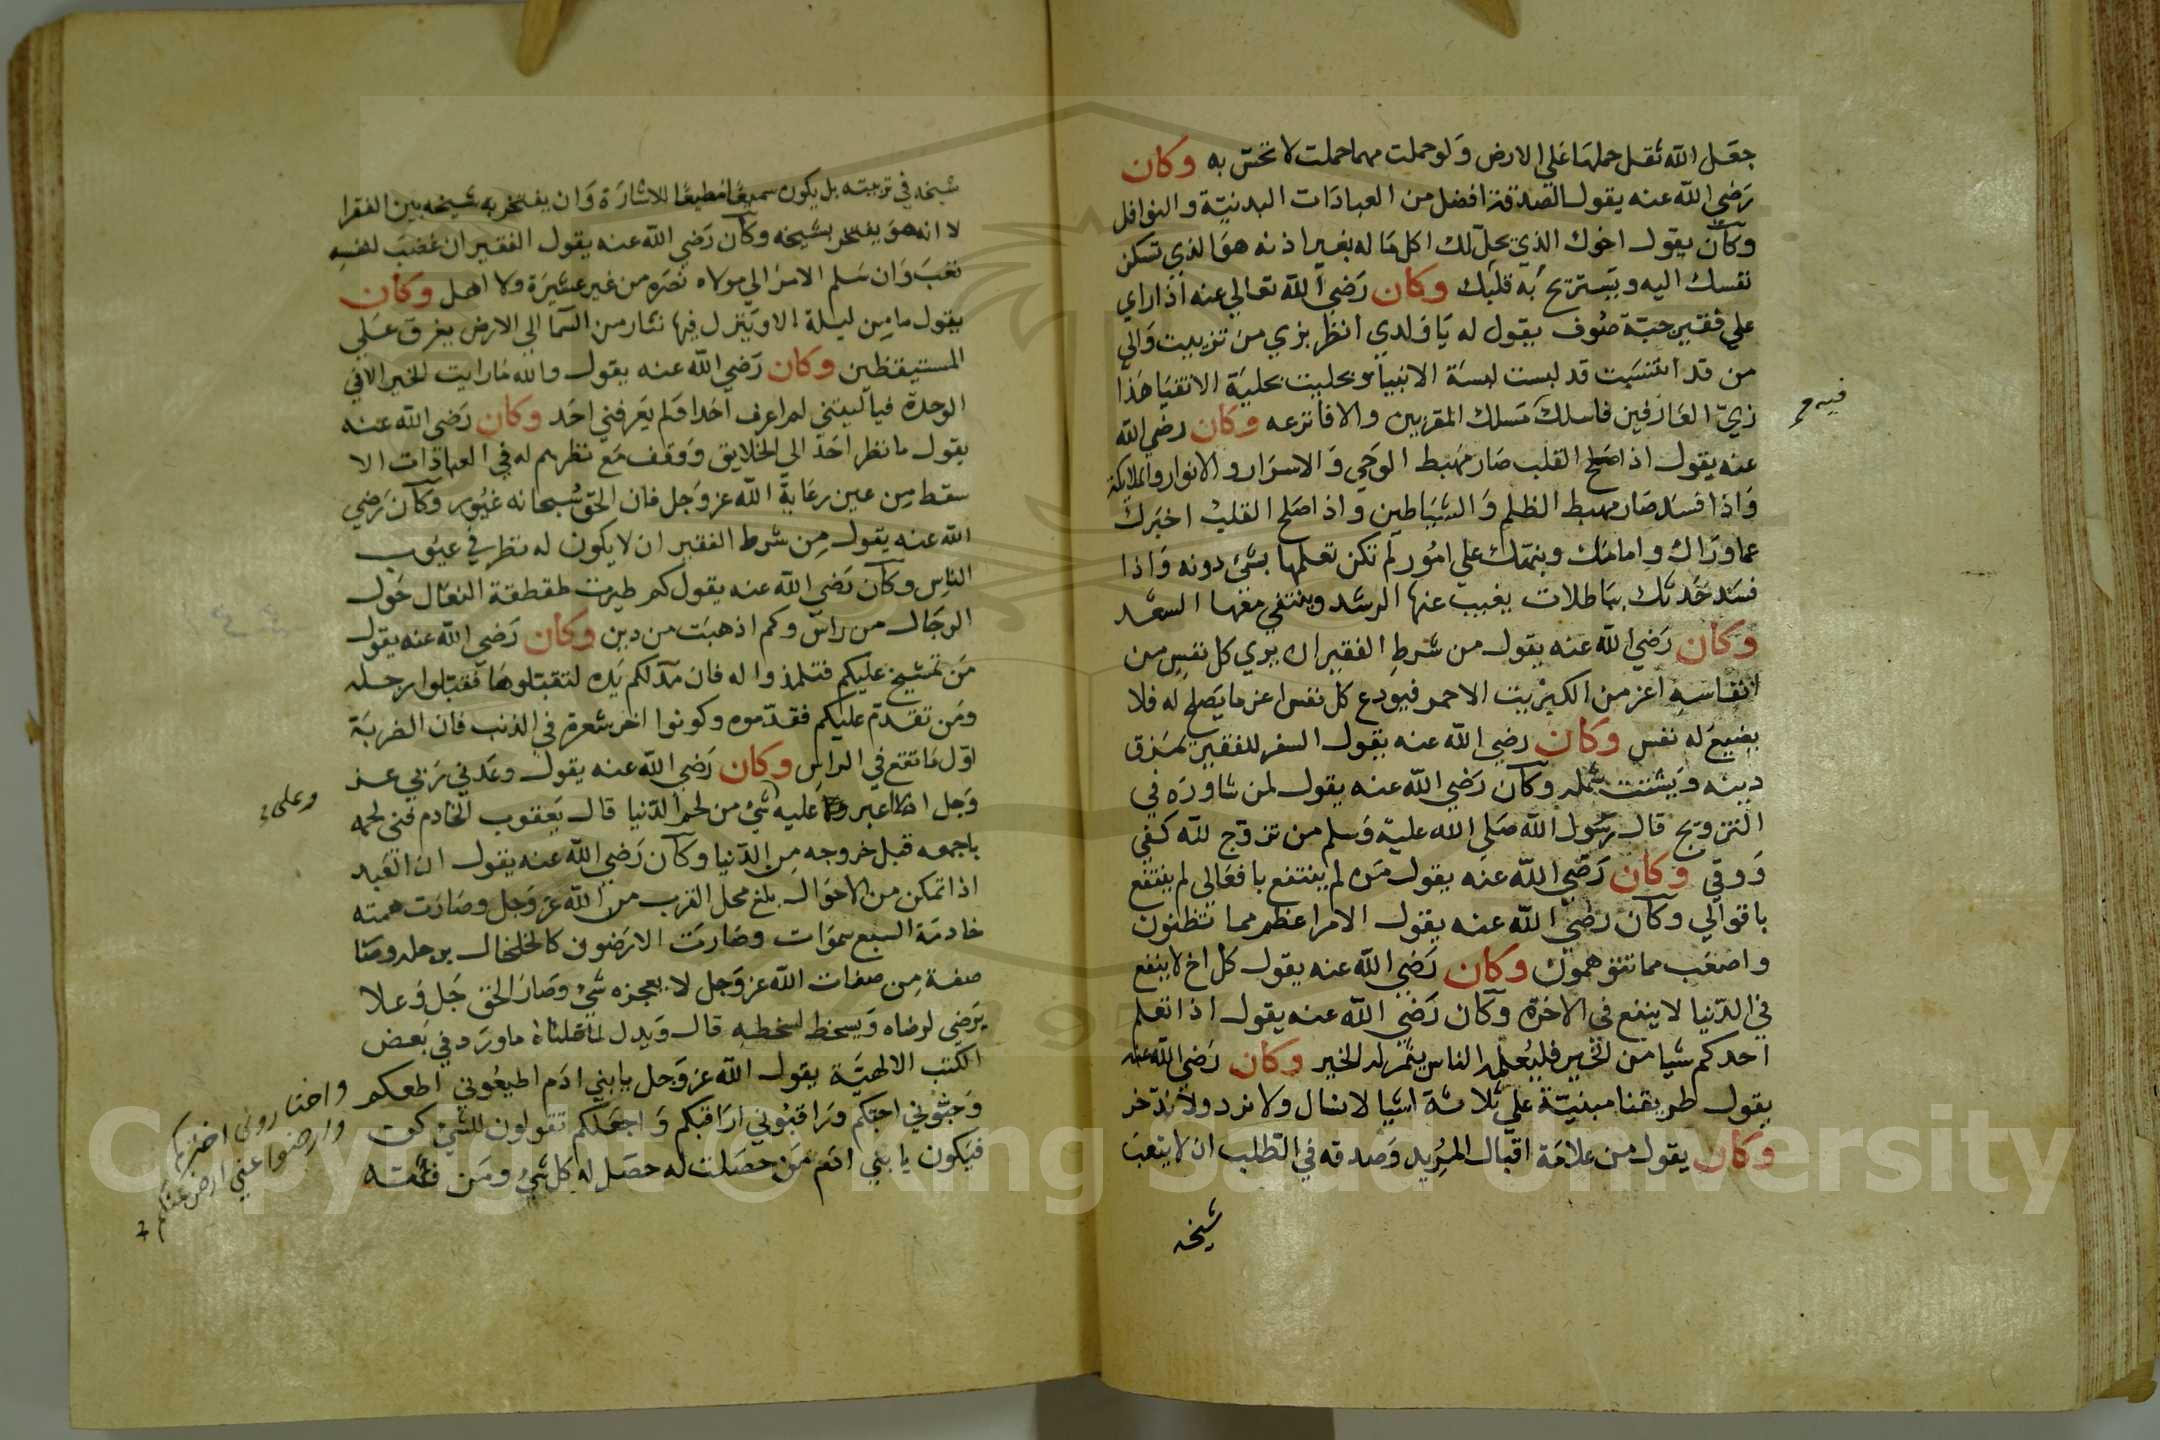 جعل الله ثقل حملها علي الارض ولو حملت مهما حملت لا تحس به وكان
رضي الله عنه يقول الصدقة افضل من العبادات البدنية والنوافل
وكان يقول اخوك الذي يحل لك اكل ماله بغير اذنه هو الذي تسكن
نفسك اليه ويستريح به قلبك وكان رضي الله تعالي عنه اذا راي
علي فقير جبة صوف يقول له يا ولدي انظر بزي من تزييت والي
من قد انتسبت قد لبست لبسة الانبيا وتحليت بحلية الاتقيا هذا
زي العارفين فاسلك مسلك المقربين والا فانزعه وكان رضي الله
فيه
عنه يقول اذا صلح القلب صار مهبط الوحي والاسرار والانوار والملائكة
واذا فسد صار مهبط الظلم والشياطين واذا صلح القلب اخبرك
عما وراك وامامك وينبهك علي امور لم تكن تعلمها بشي دونه واذا
فسد حدثك بباطلات يغيب عنها الرشد وينتفي معها السعد
وكان رضي الله عنه يقول من شرط الفقير ان يري كل نفس من
انفاسه اعز من الكبريت الاحمر فيودع كل نفس اعز ما يصلح له فلا
يضيع له نفس وكان رضي الله عنه يقول السفر للفقير يمزق
دينه ويشتت شمله وكان رضي الله عنه يقول لمن شاوره في
التزويج قال رسول الله صلي الله عليه وسلم من تزوج لله كفي
ووقي وكان رضي الله عنه يقول من لم ينتفع بافعالي لم ينتفع
باقوالي وكان رضي الله عنه يقول الامر اعظم مما تظنون
واصعب مما تتوهمون وكان رضي الله عنه يقول كل اخ لا ينفع
في الدنيا لا ينفع في الاخرة وكان رضي الله عنه يقول اذا تعلم
احدكم شيا من الخير فليعلمه الناس يثمر له الخير وكان رضي الله عنه
يقول طريقنا مبنية علي ثلاثة اشيا لا نسال ولا نرد ولا ندخر
وكان يقول من علامة اقبال المريد وصدقه في الطلب ان لا يتعب
شيخه
شيخه في تربيته بل يكون سميعا مطيعا للاشارة وان يفتخر به شيخه بين الفقرا
لا انه هو يفتخر بشيخه وكان رضي الله عنه يقول الفقير ان غضب لنفسه
تعب وان سلم الامر الي مولاه نصره من غير عشيرة ولا اهل وكان
يقول ما من ليلة الا وينزل فيها نثار من السما الي الارض يفرق علي
المستيقظين وكان رضي الله عنه يقول والله ما رايت الخير الا في
الوحدة فيا ليتني لم اعرف احدا ولم يعرفني احد وكان رضي الله عنه
يقول ما نظر احد الي الخلايق ووقف مع نظرهم له في العبادات الا
سقط من عين رعاية الله عز وجل فان الحق سبحانه غيور وكان رضي
الله عنه يقول من شرط الفقير ان لا يكون له نظر في عيوب
الناس وكان رضي الله عنه يقول كم طيرت طقطقة النعال حول
الرجال من راس وكم اذهبت من دين وكان رضي الله عنه يقول
من تمشيخ عليكم فتلمذوا له فان مد لكم يده لتقبلوها فقبلوا رجله
ومن تقدم عليكم فقدموه وكونوا اخر شعرة في الذنب فان الضربة
اول ما تقع في الراس وكان رضي الله عنه يقول وعدني ربي عز
وعلي
وجل ان لا اعبر عليه شي من لحم الدنيا قال يعقوب الخادم ففني لحمه
باجمعه قبل خروجه من الدنيا وكان رضي الله عنه يقول ان العبد
اذا تمكن من الاحوال بلغ محل القرب من الله عز وجل وصارت همته
خادمة السبع سموات وصارت الارضون كالخلخال برجله وصار
صفة من صفات الله عز وجل لا يعجزه شي وصار الحق جل وعلا
يرضي لرضاه ويسخط لسخطه قال ويدل لما قلناه ما ورد في بعض
الكتب الالهية يقول الله عز وجل يا بني ادم اطيعوني اطعكم
واختاروني اختركم
وارضوا عني ارض عنكم
وحبوني احبكم وراقبوني اراقبكم واجعلكم تقولون للشي كن
فيكون يا بني ادم من حصلت له حصل له كل شي ومن فته
Copyright © King Saud University